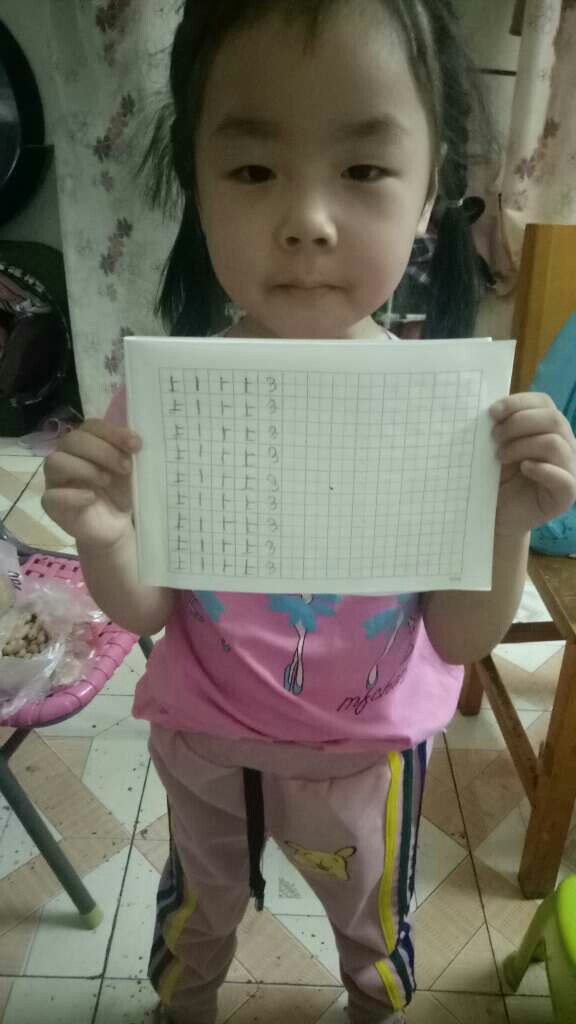 上 丨 卜 上 3
上 丨 卜 上 3
上 丨 卜 上 3
上 丨 卜 上 3
上 丨 卜 上 3
上 丨 卜 上 3
上 丨 卜 上 3
上 丨 卜 上 3
上 丨 卜 上 3